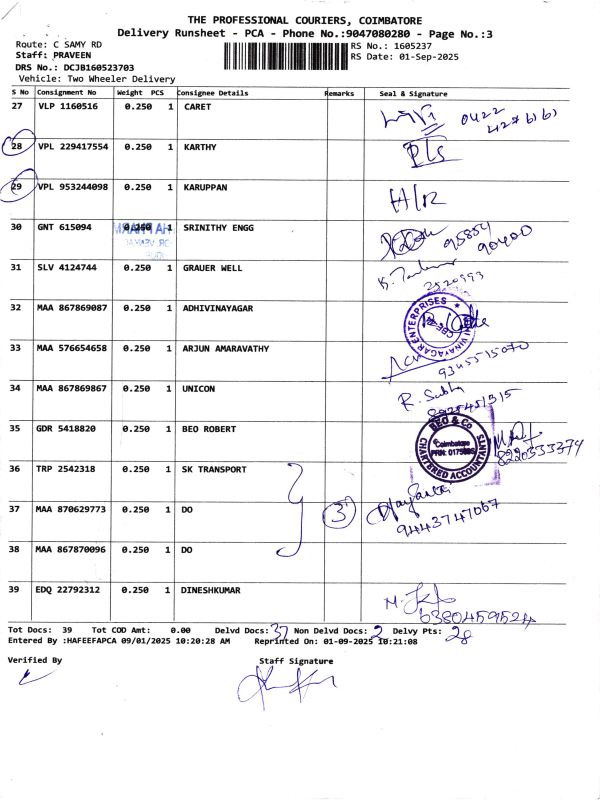 THE PROFESSIONAL COURIERS, COIMBATORE
Delivery Runsheet - PCA - Phone No.:9047080280 - Page No.:3
Route: C SAMY RD RS No.: 1605237
Staff: PRAVEEN RS Date: 01-Sep-2025
DRS No.: DCJB160523703
Vehicle: Two Wheeler Delivery
S No Consignment No Weight PCS Consignee Details Remarks Seal & Signature
27 VLP 1160516 0.250 1 CARET 0422
28 VPL 229417554 0.250 1 KARTHY
29 VPL 953244098 0.250 1 KARUPPAN
30 GNT 615094 0.250 1 SRINITHY ENGG 95854
90400
31 SLV 4124744 0.250 1 GRAUER WELL
2520993
32 MAA 867869087 0.250 1 ADHIVINAYAGAR
33 MAA 576654658 0.250 1 ARJUN AMARAVATHY
9345515070
34 MAA 867869867 0.250 1 UNICON R. Subha
8925451315
35 GDR 5418820 0.250 1 BEO ROBERT BEO & Co
Coimbatore
CHARTERED ACCOUNTANTS
8220333374
36 TRP 2542318 0.250 1 SK TRANSPORT
37 MAA 870629773 0.250 1 DO 3
9443747067
38 MAA 867870096 0.250 1 DO
39 EDQ 22792312 0.250 1 DINESHKUMAR
6380459524
Tot Docs: 39 Tot COD Amt: 0.00 Delvd Docs: 37 Non Delvd Docs: 2 Delvy Pts: 28
Entered By :HAFEEFAPCA 09/01/2025 10:20:28 AM Reprinted On: 01-09-2025 10:21:08
Verified By Staff Signature